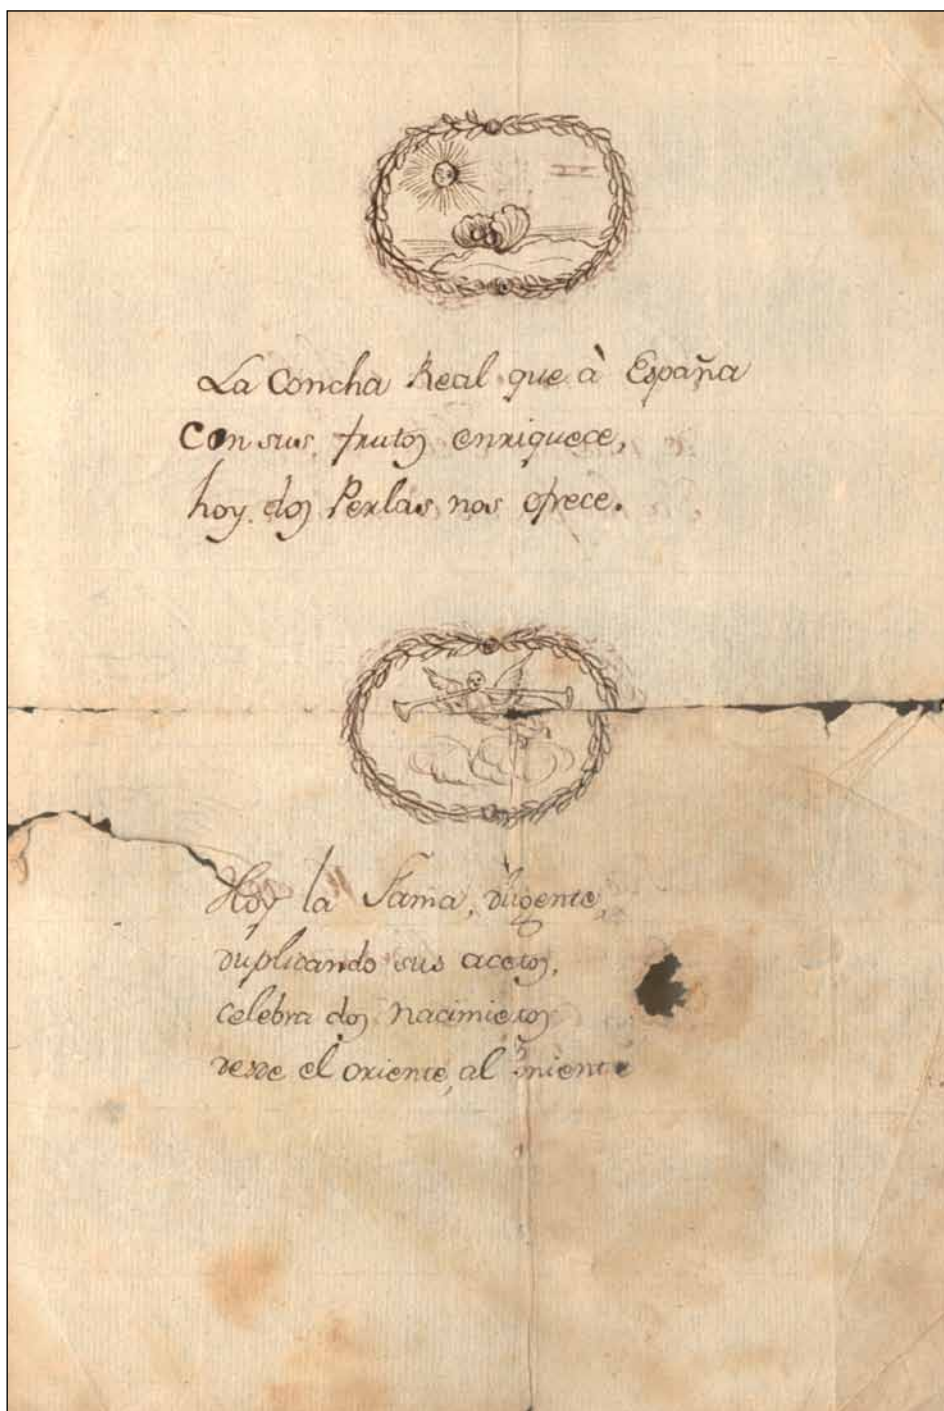 La Concha Real que à España
Con sus frutos enriquece,
hoy dos Perlas nos ofrece.
Hoy la Fama, diligente,
duplicando sus acetos,
celebra dos nacimietos
desde el oriente, al